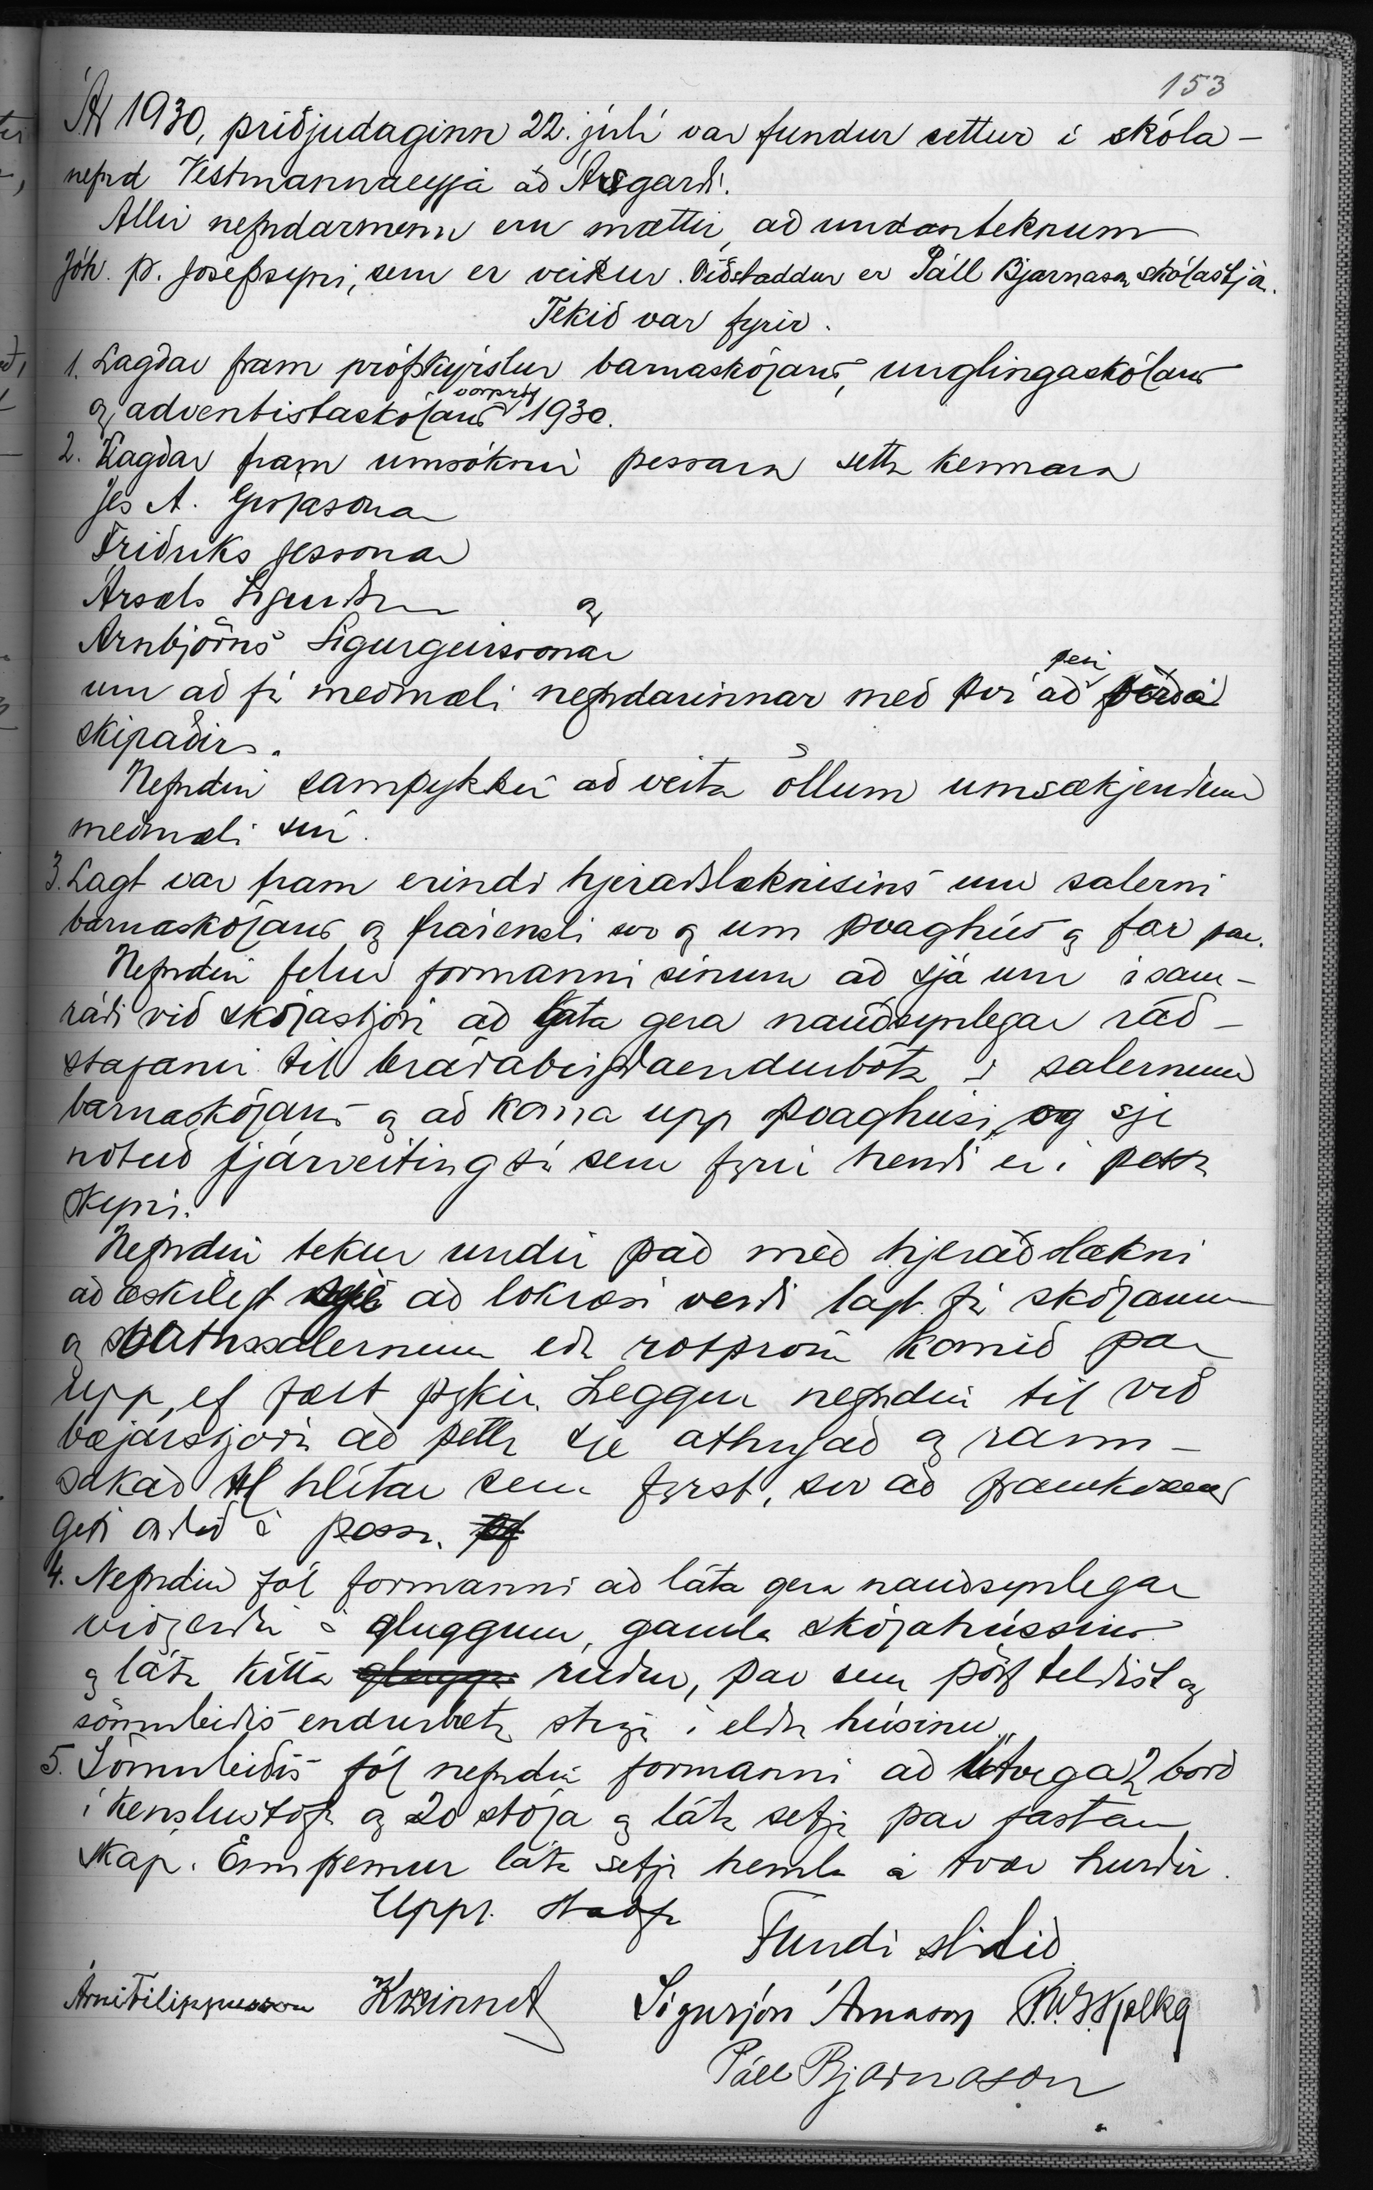 153
Ár 1930, þriðjudaginn 22. júlí var fundur settur í skóla-
nefnd Vestmannaeyja að Ásgarði.
Allir nefndarmenn eru mættir, að undanteknum
Jóh. Þ. Jósefssyni, sem er veikur. Viðstaddur er Páll Bjarnason skólastjóri.
Tekið var fyrir.
1. Lagðar fram prófskýrslur barnaskólans, unglingaskólans
og adventistaskólans vorpróf 1930.
2. Lagðar fram umsóknir þessara settu kennara
Jes A. Gíslasonar
Friðriks Jessonar
Ársæls Sigurðssonar og
Arnbjörns Sigurgeirssonar
um að fá meðmæli nefndarinnar með því að þeir verði
skipaðir.
Nefndin samþykkir að veita öllum umsækjendum
meðmæli sín.
3. Lagt var fram erindi hjeraðslæknisins um salerni
barnaskólans og frárensli svo og um þvaghús og for þar.
Nefndin felur formanni sínum að sjá um í sam-
ráði við skólastjóra að láta gera nauðsynlegar ráð-
stafanir til bráðabirgðaendurbóta á salernum
barnaskólans og að koma upp þvaghúsi, og sje
notuð fjárveiting sú sem fyrir hendi er í þessu
skyni.
Nefndin tekur undir það með hjeraðslækni
að æskilegt sje að lokræsi verði lagt frá skólanum
og vatnssalernum eða rotþróm komið þar
upp, ef fært þykir. Leggur nefndin til við
bæjarstjórn að þetta sje athugað og rann-
sakað til hlítar sem fyrst, svo að framkvæmd
geti orðið á þessu.
4. Nefndin fól formanni að láta gera nauðsynlegar
viðgerðir á gluggum, gamla skólahússins
og láta kítta glugga rúður, þar sem þörf teldist og
sömuleiðis endurbæta stiga í eldra húsinu.
5. Sömuleiðis fól nefndin formanni að útvega 2 borð
í kenslustofu og 20 stóla og láta setja þar fastan
skáp. Ennfremur láta setja hemla á tvær hurðir.
Uppl. staðf.
Fundi slitið
Árni Filippusson KLinnet Sigurjón Árnason P.V.G.Kolka
Páll Bjarnason